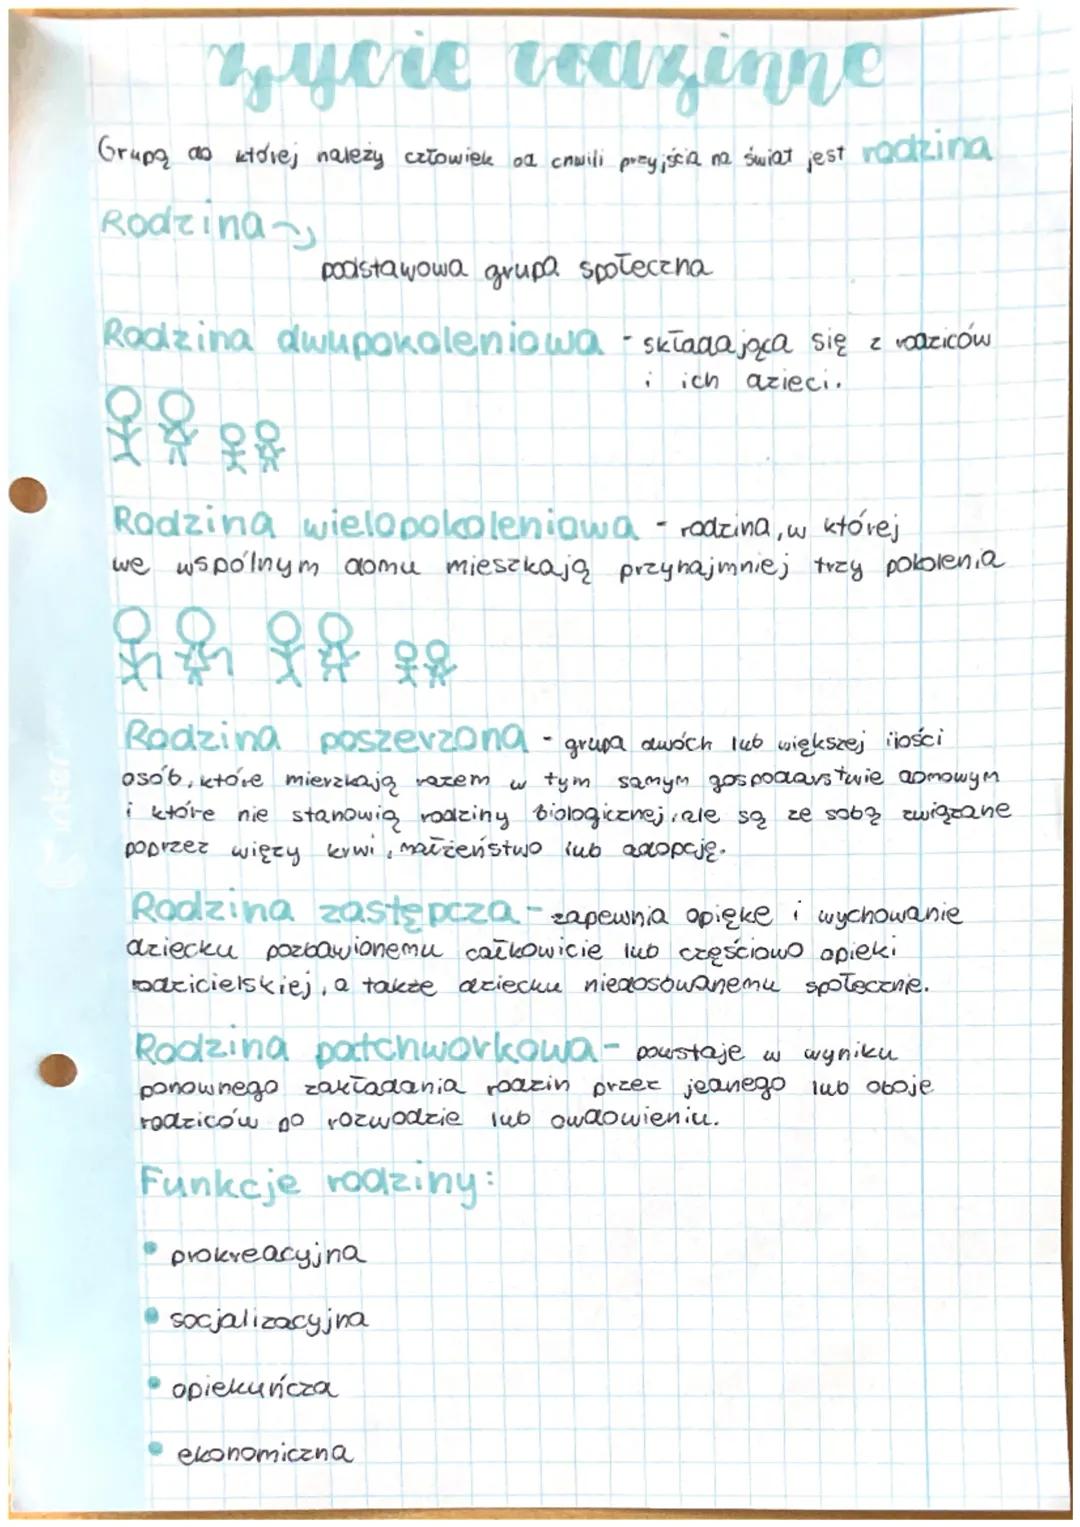 życie rodzinne
Grupą do której należy człowiek od chwili przyjścia na świat jest rodzina
Rodzina
podstawowa grupa społeczna
Rodzina dwupokoleniowa - składająca się z rodziców
i ich dzieci.
Rodzina wielopokoleniowa - rodzina, w której
we wspólnym domu mieszkają przynajmniej trzy pokolenia
Rodzina poszerzona - grupa dwóch lub większej ilości
osób, które mierzkają razem w tym samym gospodarstwie domowym
i które nie stanowią rodziny biologicznej, ale są ze sobą związane
poprzez więzy krwi, małżeństwo lub adopcję.
Rodzina zastępcza - zapewnia opięke i wychowanie
dziecku pozbawionemu całkowicie lub częściowo opieki
rodzicielskiej, a także dziecku niedosowanemu społecznie.
Rodzina patchworkowa - powstaje w wyniku
ponownego zakładania rodzin przez jednego lub oboje
rodziców po rozwodzie lub owdowieniu.
Funkcje rodziny:
• prokreacyjna
• socjalizacyjna
• opiekuńcza
• ekonomiczna